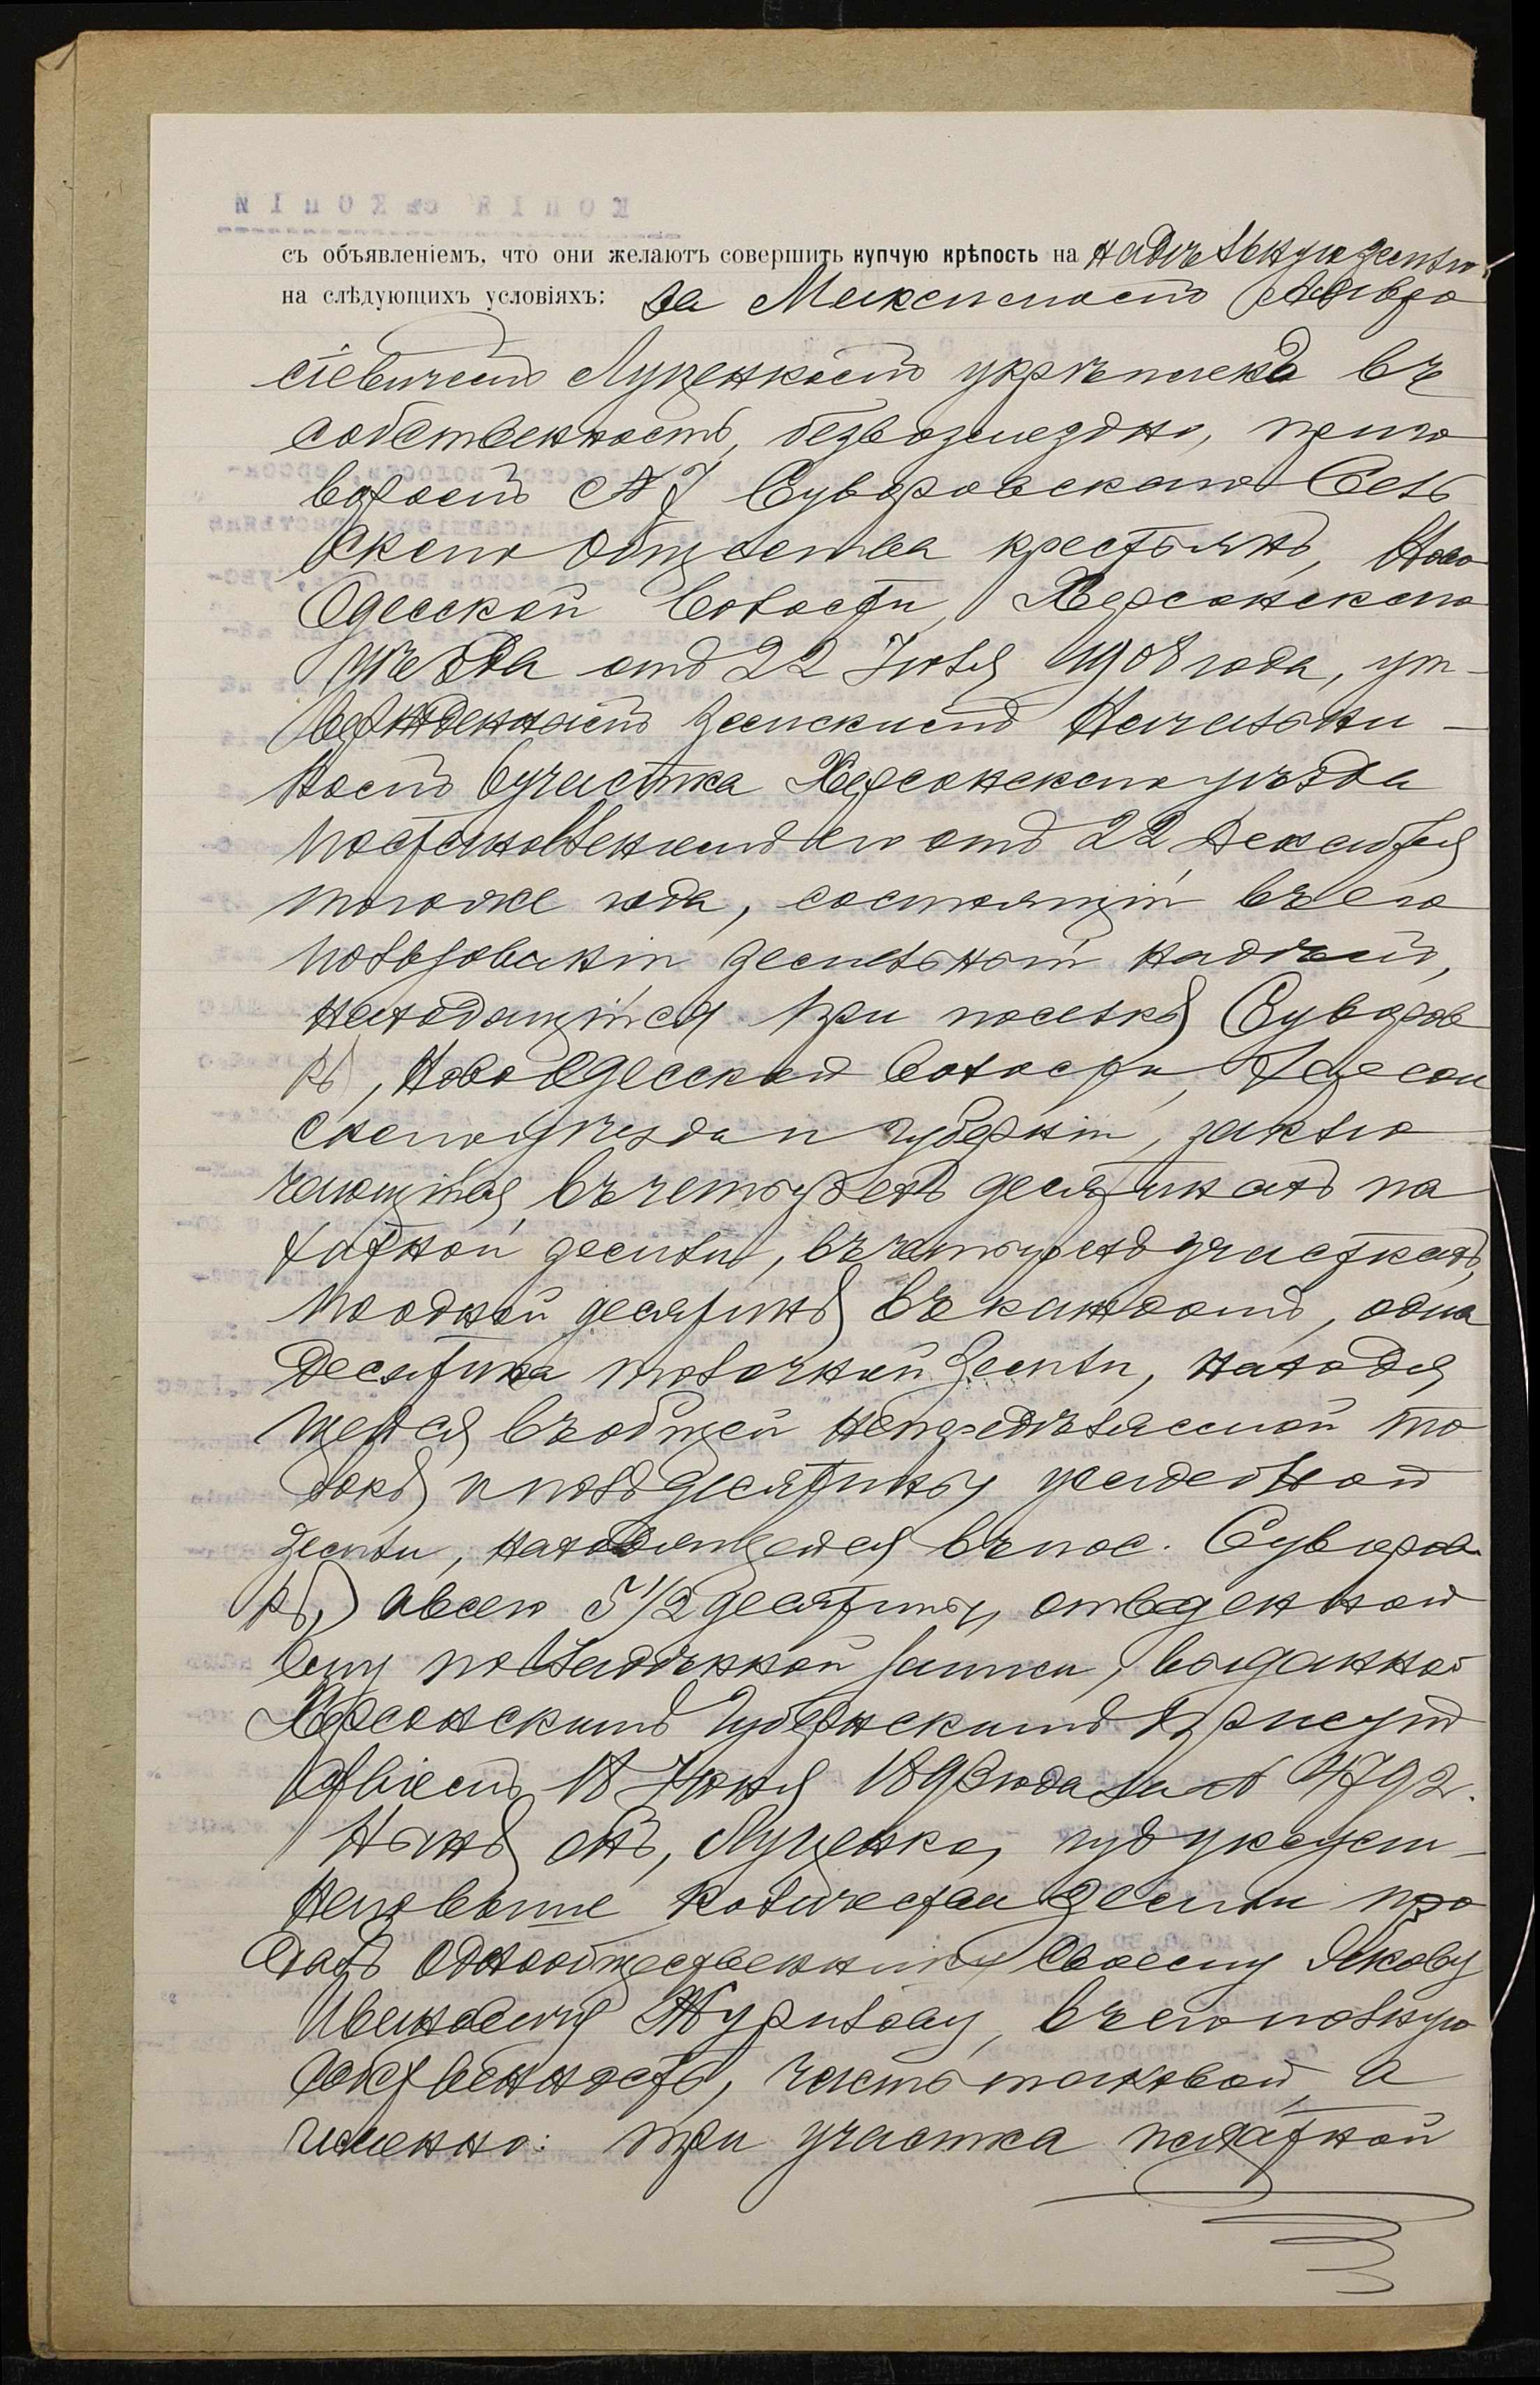 КОПІЯ съ КОПІИ
съ объявленіемъ, что они желаютъ совершить купчую крѣпость на надѣльную землю
на слѣдующихъ условіяхъ: за Максимомъ Авдо
сіевичемъ Луценкомъ укрѣплена въ
собственность, безвозмездно, приго
воромъ № 7 Суворовскаго Сель
скаго Общества крестьянъ, Ново
Одесской волости, Херсонскаго
уѣзда отъ 22 Іюля 1908 года, ут-
вержденнымъ Земскимъ Начальни-
комъ 6 участка Херсонскаго уѣзда
постановленіемъ его отъ 22 Декабря
того же года, состоящій въ его
пользованіи земельный надѣлъ,
находящійся при поселкѣ Суворов
кѣ, Ново Одесской волости, Херсон
скаго уѣзда и губерніи, заклю
чающійся въ четырехъ десятинахъ па
хатной земли, въ четырехъ участкахъ,
по одной десятинѣ въ каждомъ, одна
десятина толочной земли, находя
щейся въ общей нераздѣляемой то
локѣ и полъ десятины усадебной
земли, находящейся въ пос. Суворов
кѣ, а всего 5 1/2 десятины, отведенной
ему по владѣнной записи, выданной
Херсонскимъ Губернскимъ Присут
ствіемъ 18 Іюня 1893 года за № 4792.
Нынѣ онъ, Луценко, изъ укауст-
неговыше количества земли про
далъ однообщественнику своему Якову
Ивановичу Журилову, въ его полную
собственность, часть таковой, а
именно: три участка пахатной